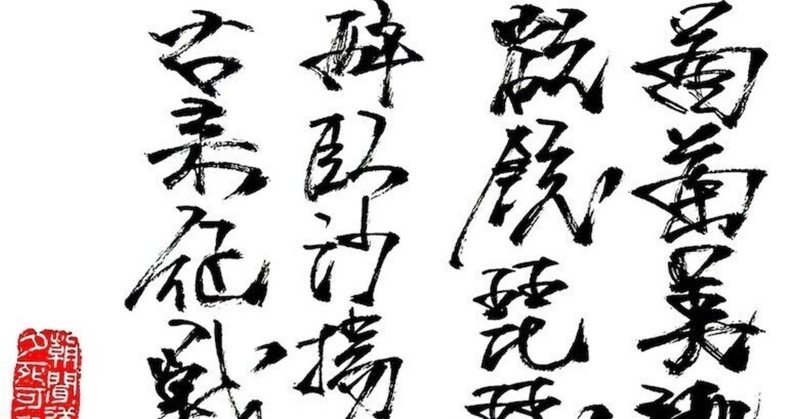 葡萄美
欲飲琵
醉臥沙場
古来征戰
朝聞
夕死可